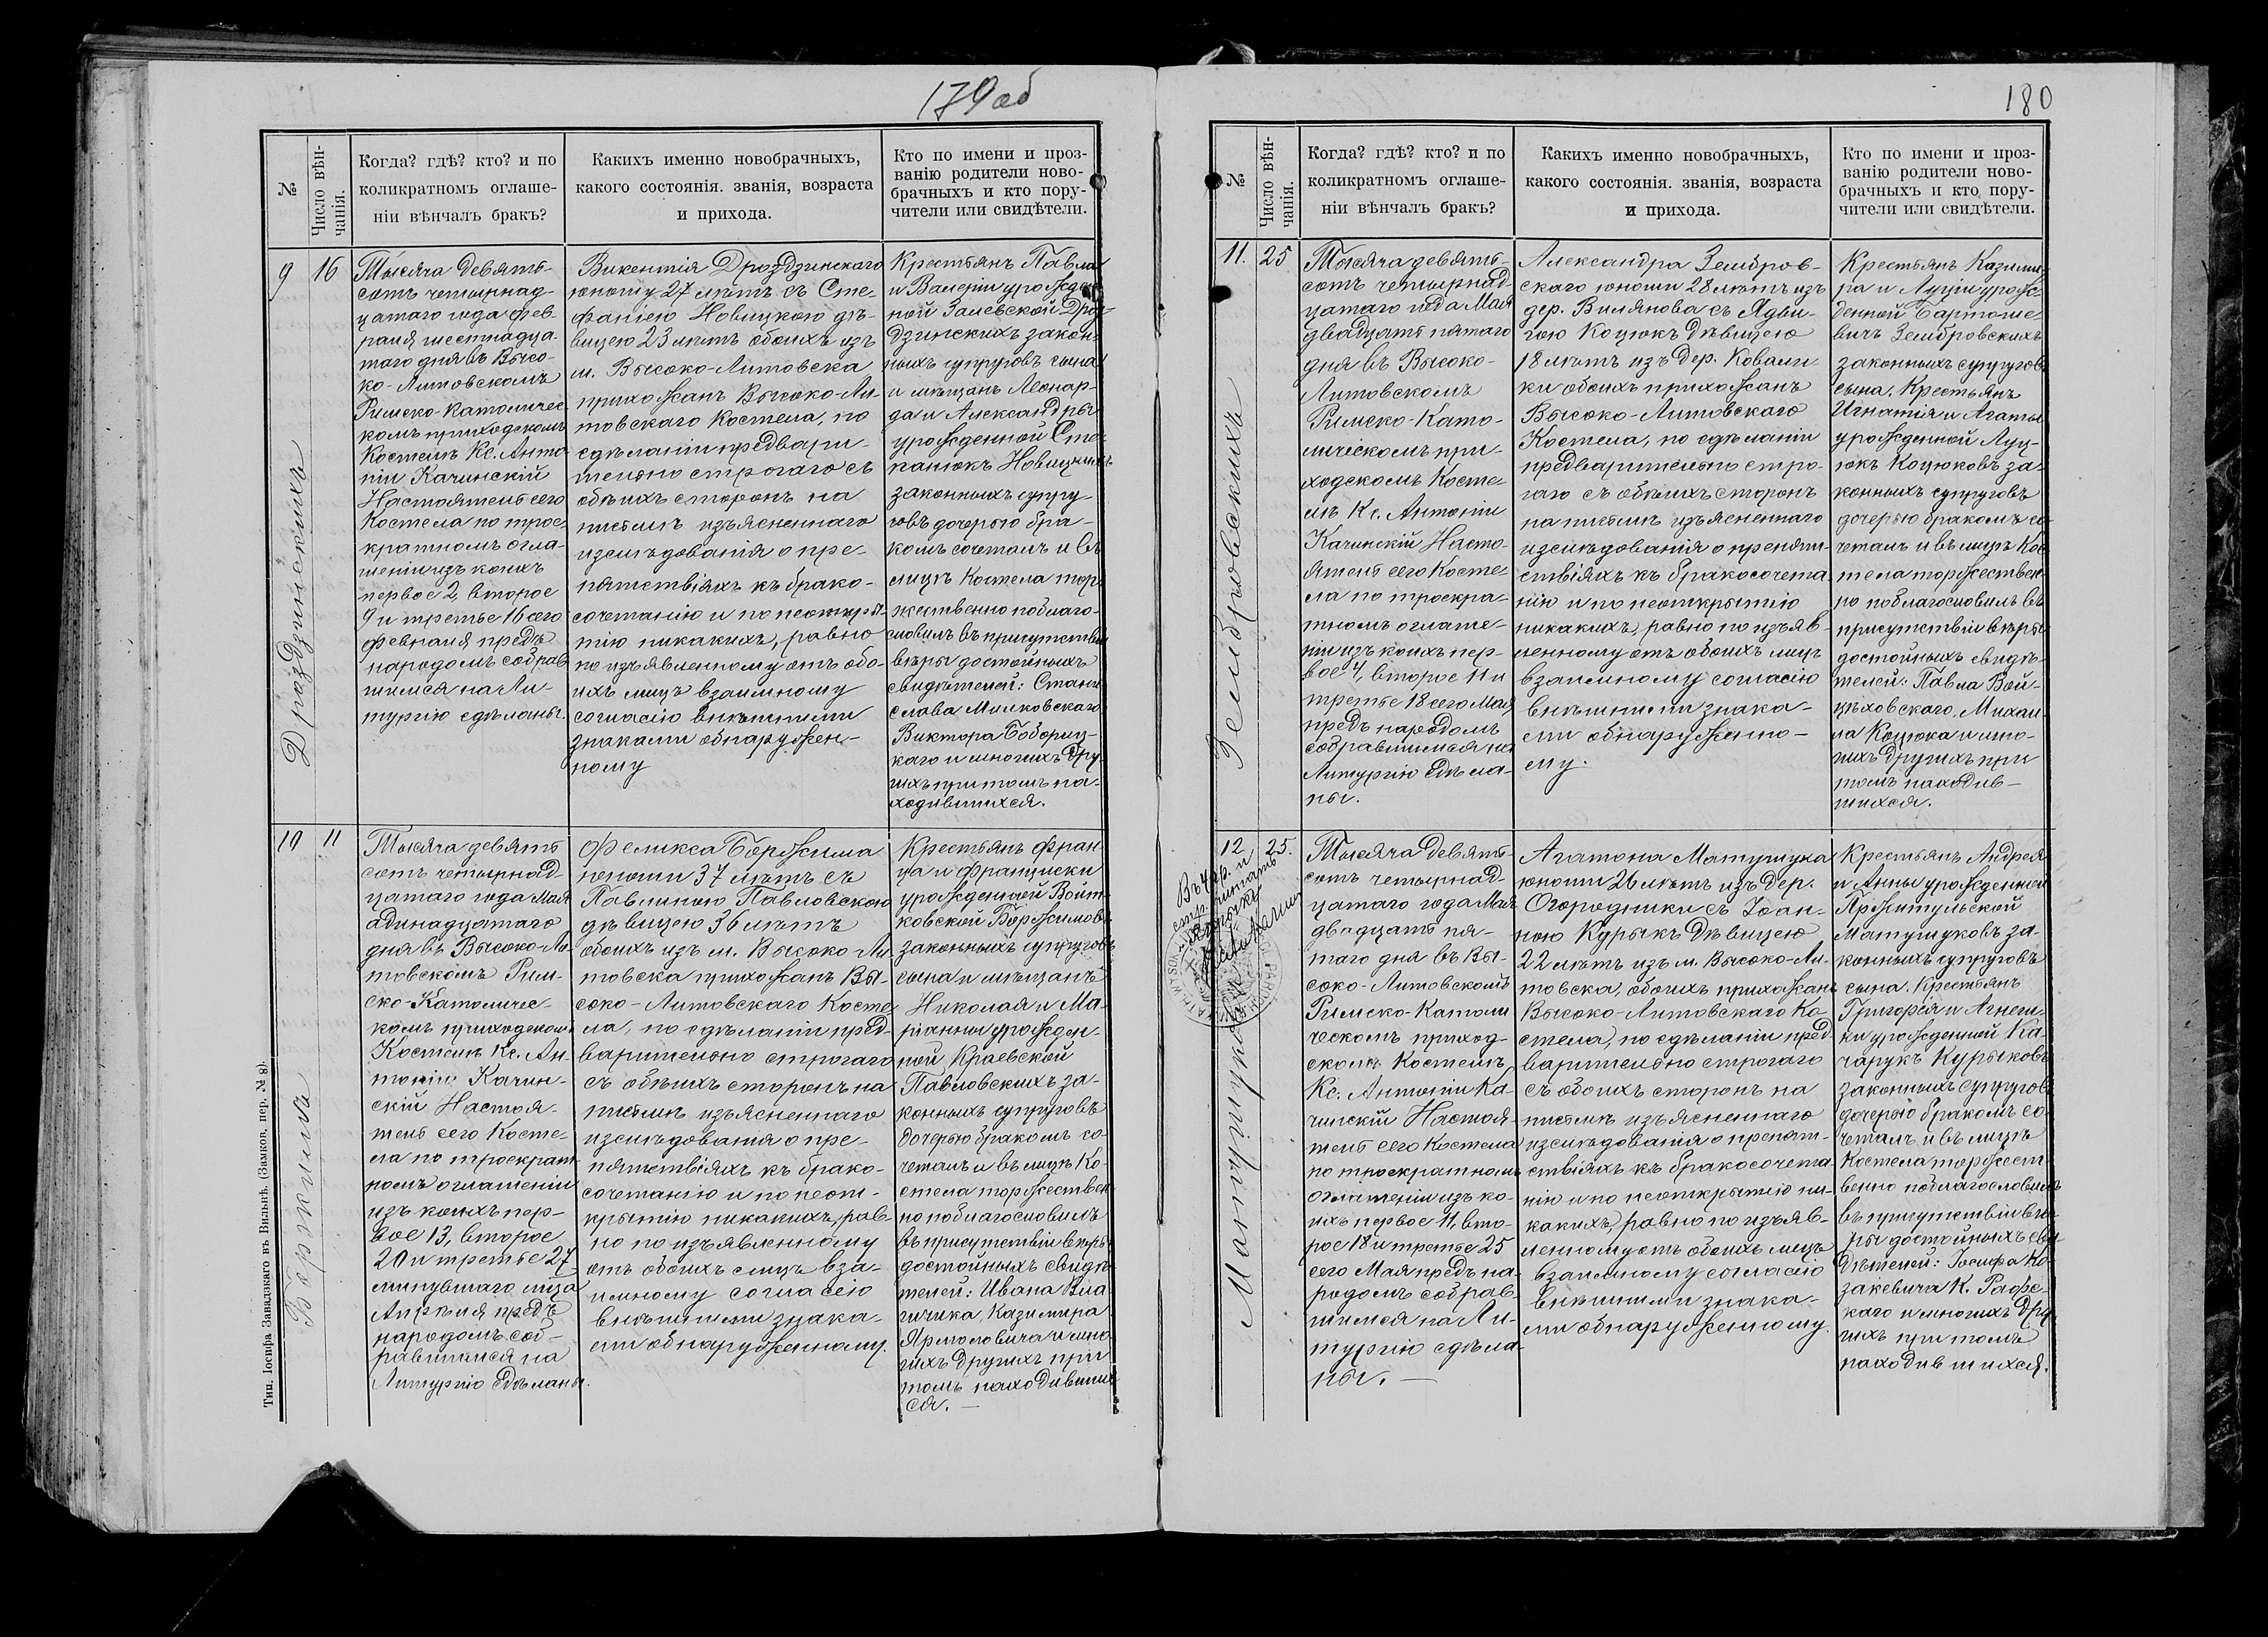 179 об
№
Число вѣн-
чанія.
Когда? гдѣ? кто? и по
коликратномъ оглаше-
ніи вѣнчалъ бракъ?
Какихъ именно новобрачныхъ,
какого состоянія. званія, возраста
и прихода.
Кто по имени и проз-
ванію родители ново-
брачныхъ и кто пору-
чители или свидѣтели.
9
16
Дроздзинскихъ
Тысяча девять-
сотъ четырнад-
цатаго года фев-
раля шестнадца-
таго дня въ Высо-
ко-Литовскомъ
Римско-Католичес-
комъ приходскомъ
Костелѣ Кс. Анто-
ній Качинскій
Настоятель сего
Костела по трое-
кратномъ огла-
шеніи изъ коихъ
первое 2, второе
9 и третье 16 сего
февраля предъ
народомъ собрав
шимся на Ли-
тургію сдѣланы.
Викентія Дроздзинскаго
юношу 27 лѣтъ съ Сте-
фаніею Новицкою дѣ-
вицею 23 лѣтъ обоихъ изъ
м. Высоко-Литовска
прихожанъ Высоко-Ли-
товскаго Костела, по
сдѣланіи предвари-
тельно строгаго съ
обѣихъ сторонъ на
письмѣ изъясненнаго
изслѣдованія о пре-
пятствіяхъ къ брако-
сочетанію и по неоткры-
тію никакихъ, равно
по изъявленному отъ обо-
ихъ лицъ взаимному
согласію внѣшними
знаками обнаружен-
ному
Крестьянъ Павла
и Валеріи урожден
ной Залевской Дроз-
дзинскихъ закон-
ныхъ супруговъ сына
и мѣщанъ Леонар-
да и Александры
урожденной Сте-
панюкъ Новицкихъ
законныхъ супру-
говъ дочерью бра-
комъ сочеталъ и въ
лицѣ Костела тор-
жественно поблаго-
словилъ въ присутствіи
вѣры достойныхъ
свидѣтелей: Стани
слава Милковскаго
Виктора Бобориц-
каго и многихъ дру
гихъ притомъ на-
ходившихся.
10
11
Боржима
Тысяча девять
сотъ четырнад-
цатаго года Мая
адинадцатаго
дня въ Высоко-Ли
товскомъ Рим-
ско-Католичес-
комъ приходскомъ
Костелѣ Кс. Ан-
тоній Качин-
скій Настоя-
тель сего Косте-
ла по троекрат-
номъ оглашеніи
изъ коихъ пер-
вое 13, второе
20 и третье 27
минувшаго м-ца
Апрѣля предъ
народомъ соб-
равшимся на
Литургію сдѣланы.
Феликса Боржима
юноши 37 лѣтъ съ
Павлиною Павловскою
дѣвицею 36 лѣтъ
обоихъ изъ м. Высоко-Ли
товска прихожанъ Вы-
соко-Литовскаго Косте
ла, по сдѣланіи пред-
варительно строгаго
съ обѣихъ сторонъ на
письмѣ изъясненнаго
изслѣдованія о пре-
пятствіяхъ къ брако-
сочетанію и по неот-
крытію никакихъ, рав-
но по изъявленному
отъ обоихъ лицъ вза-
имному согласію
внѣшними знака-
ми обнаруженному.
Крестьянъ Фран
ца и Францишки
урожденной Войт-
ковской Боржимовъ
законныхъ супруговъ
сына и мѣщанъ
Николая и Ма-
ріанны урожден-
ной Краевской
Павловскихъ за-
конныхъ супруговъ
дочерью бракомъ со-
четалъ и въ лицѣ Ко-
стела торжествен
но поблагословилъ
въ присутствіи вѣры
достойныхъ свидѣ-
телей: Ивана
Казимира
Ярмоловича и мно
гихъ другихъ при
томъ находивших
ся. —
Тип. Іосифа Завадзкаго въ Вильнѣ. (Замков. пер. № 8).
180
№
Число вѣн-
чанія.
Когда? гдѣ? кто? и по
коликратномъ оглаше-
ніи вѣнчалъ бракъ?
Какихъ именно новобрачныхъ,
какого состоянія. званія, возраста
и прихода.
Кто по имени и проз-
ванію родители ново-
брачныхъ и кто пору-
чители или свидѣтели.
11.
25
Зембровскихъ
Тысяча девять-
сотъ четырнад
цатаго года Мая
двадцать пятаго
дня въ Высоко-
Литовскомъ
Римско-Като-
лическомъ при-
ходскомъ Косте
лѣ Кс. Антоній
Качинскій Насто-
ятель сего Косте-
ла по троекра-
тномъ оглаше-
ніи изъ коихъ пер-
вое 4, второе 11 и
третье 18 сего Мая
предъ народомъ
собравшимся на
Литургію сдѣла-
ны.
Александра Зембров-
скаго юноши 28 лѣтъ изъ
дер. Вилянова съ Ядви-
гою Коцюкъ дѣвицею
18 лѣтъ изъ дер. Ковали
ки обоихъ прихожанъ
Высоко-Литовскаго
Костела, по сдѣланіи
предварительно стро-
гаго съ обѣихъ сторонъ
на письмѣ изъясненнаго
изслѣдованія о препят-
ствіяхъ къ бракосочета
нію и по неоткрытію
никакихъ, равно по изъяв
ленному отъ обоихъ лицъ
взаимному согласію
внѣшними знака-
ми обнаружено-
му.
Крестьянъ Казими-
ра и Луціи урож-
денной Бартоше-
вичъ Зембровскихъ
законныхъ супруговъ
сына, Крестьянъ
Игнатія и Агаты
урожденной Луц-
юкъ Коцюковъ за-
конныхъ супруговъ
дочерью бракомъ со-
четалъ и въ лицѣ Кос
тела торжествен-
но поблагословилъ въ
присутствіи вѣры
достойныхъ свидѣ-
телей: Павла Вой-
цѣховскаго, Михаи-
ла Коцюка и мно-
гихъ другихъ при
томъ находив-
шихся.
12
25.
Матушукова
Тысяча девять-
сотъ четырнад-
цатаго года Мая
двадцать пя-
таго дня въ Вы-
соко-Литовскомъ
Римско-Католи
ческомъ приход-
скомъ Костелѣ
Кс. Антоній Ка-
чинскій Настоя-
тель сего Костела
по троекратномъ
оглашеніи изъ ко-
ихъ первое 11, вто-
рое 18 и третье 25
сего Мая предъ на-
родомъ собрав-
шимся на Ли-
тургію сдѣла-
ны. —
Агатона Матушука
юноши 26 лѣтъ изъ дер.
Огородники съ Іоан-
ною Курыкъ дѣвицею
22 лѣтъ изъ м. Высоко-Ли-
товска, обоихъ прихожанъ
Высоко-Литовскаго Ко
стела, по сдѣланіи пред-
варительно строгаго
съ обоихъ сторонъ на
письмѣ изъясненнаго
изслѣдованія о препят-
ствіяхъ къ бракосочета-
нію и по неоткрытію ни-
какихъ, равно по изъяв-
ленному отъ обоихъ лицъ
взаимному согласію
внѣшними знака-
ми обнаруженному.
Крестьянъ Андрея
и Анны урожденной
Матушуковъ за-
конныхъ супруговъ
сына. Крестьянъ
Григорія и Агнеш-
ки урожденной Ка-
чарукъ Курыковъ
законныхъ супруговъ
дочерью бракомъ со-
четалъ и въ лицѣ
Костела торжест-
венно поблагословилъ
въ присутствіи вѣ-
ры достойныхъ сви
дѣтелей: Іосифа Ко
закевича К.
и многихъ дру
гихъ при томъ
находившихся.